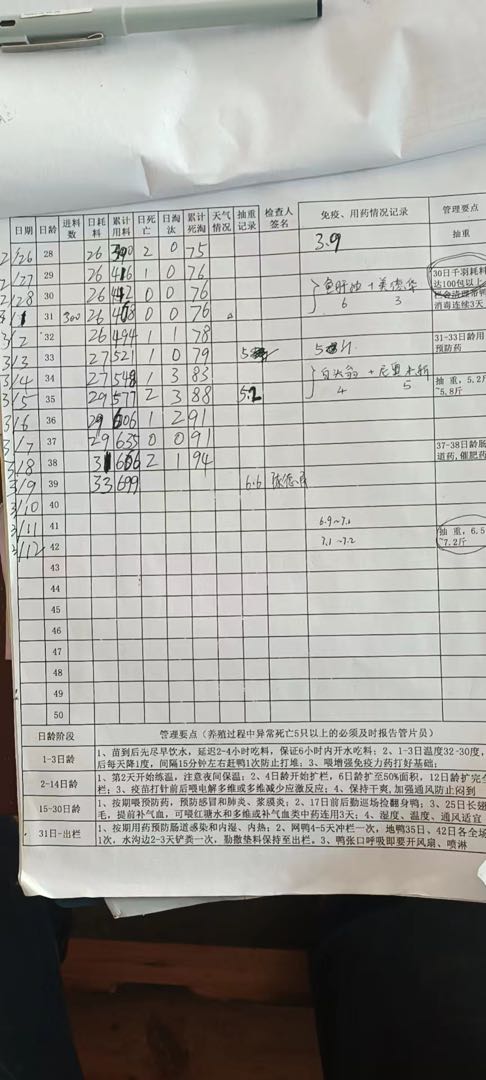 日期 日龄 进料数 日耗料 累计用料 日死亡 日淘汰 累计死淘 天气情况 抽重记录 检查人签名 免疫、用药情况记录 管理要点
2/26 28 26 390 2 0 75 3.9 抽重
2/27 29 26 416 1 0 76 30日千羽耗料
2/28 30 26 442 0 0 76 鱼肝油 + 美德华 达100包以上
6 3
3/1 31 300 26 468 0 0 76 消毒连续3天
3/2 32 26 494 1 1 78 31-33日龄用
3/3 33 27 521 1 0 79 预防药
3/4 34 27 548 1 3 83 白头翁 +
3/5 35 29 577 2 3 88 5.2 4 5 抽重，5.2斤
~5.8斤
3/6 36 29 606 1 2 91
3/7 37 29 635 0 0 91 37-38日龄肠
3/8 38 31 666 2 1 94 道药,催肥药
3/9 39 33 699 6.6
3/10 40
3/11 41 6.9~7.1
3/12 42 7.1~7.2 抽重，6.5
~7.2斤
43
44
45
46
47
48
49
50
日龄阶段 管理要点（养殖过程中异常死亡5只以上的必须及时报告管片员）
1-3日龄 1、苗到后先尽早饮水，延迟2-4小时吃料，保证6小时内开水吃料；2、1-3日温度32-30度，
后每天降1度，间隔15分钟左右赶鸭1次防止打堆；3、喂增强免疫力药打好基础；
2-14日龄 1、第2天开始练温，注意夜间保温；2、4日龄开始扩栏，6日龄扩至50%面积，12日龄扩完全
栏；3、疫苗打针前后喂电解多维或多维减少应激反应；4、保持干爽,加强通风防止闷到
15-30日龄 1、按期喂预防药，预防感冒和肺炎、浆膜炎；2、17日前后勤巡场捡翻身鸭；3、25日长翅
毛，提前补气血，可喂红糖水和多维或补气血类中药连用3天；4、湿度、温度、通风适宜
31日-出栏 1、按期用药预防肠道感染和内湿、内热；2、网鸭4-5天冲栏一次，地鸭35日、42日各全场
1次，水沟边2-3天铲粪一次，勤撒垫料保持至出栏。3、鸭张口呼吸即要开风扇、喷淋